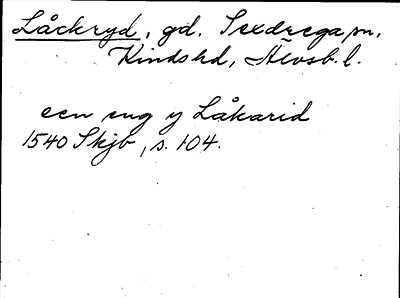 Låckryd, gd. Sexdrega sn,
Kinds hd, Älvsb. l.
een eng y Låkarid
1540 Skjb, s. 104.